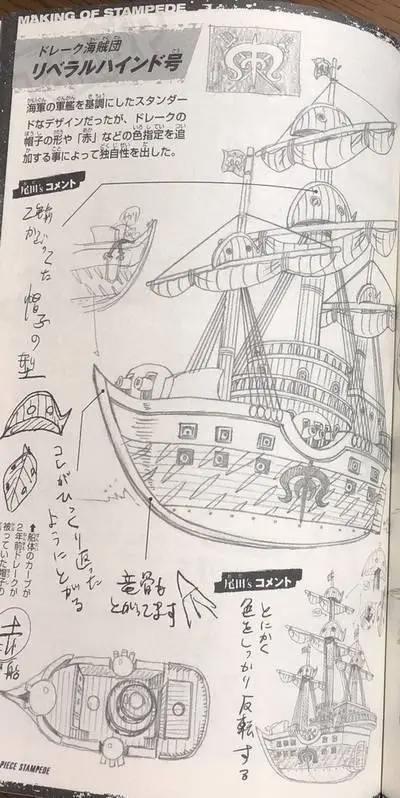 MAKING OF STAMPEDE
ドレーク海賊団
リベラルハインド号
海軍の軍艦を基調にしたスタンダー
ドなデザインだったが、ドレークの
帽子の形や「赤」などの色指定を追
加する事によって独自性を出した。
尾田's コメント
2年前
かぶってた
帽子の型
コレがひっくり返った
ようにとがる
船体のカーブが
2年前ドレークが
被っていた帽子の
竜骨も
とがってます
尾田's コメント
とにかく
色をしっかり反転する
赤い船
PIECE STAMPEDE